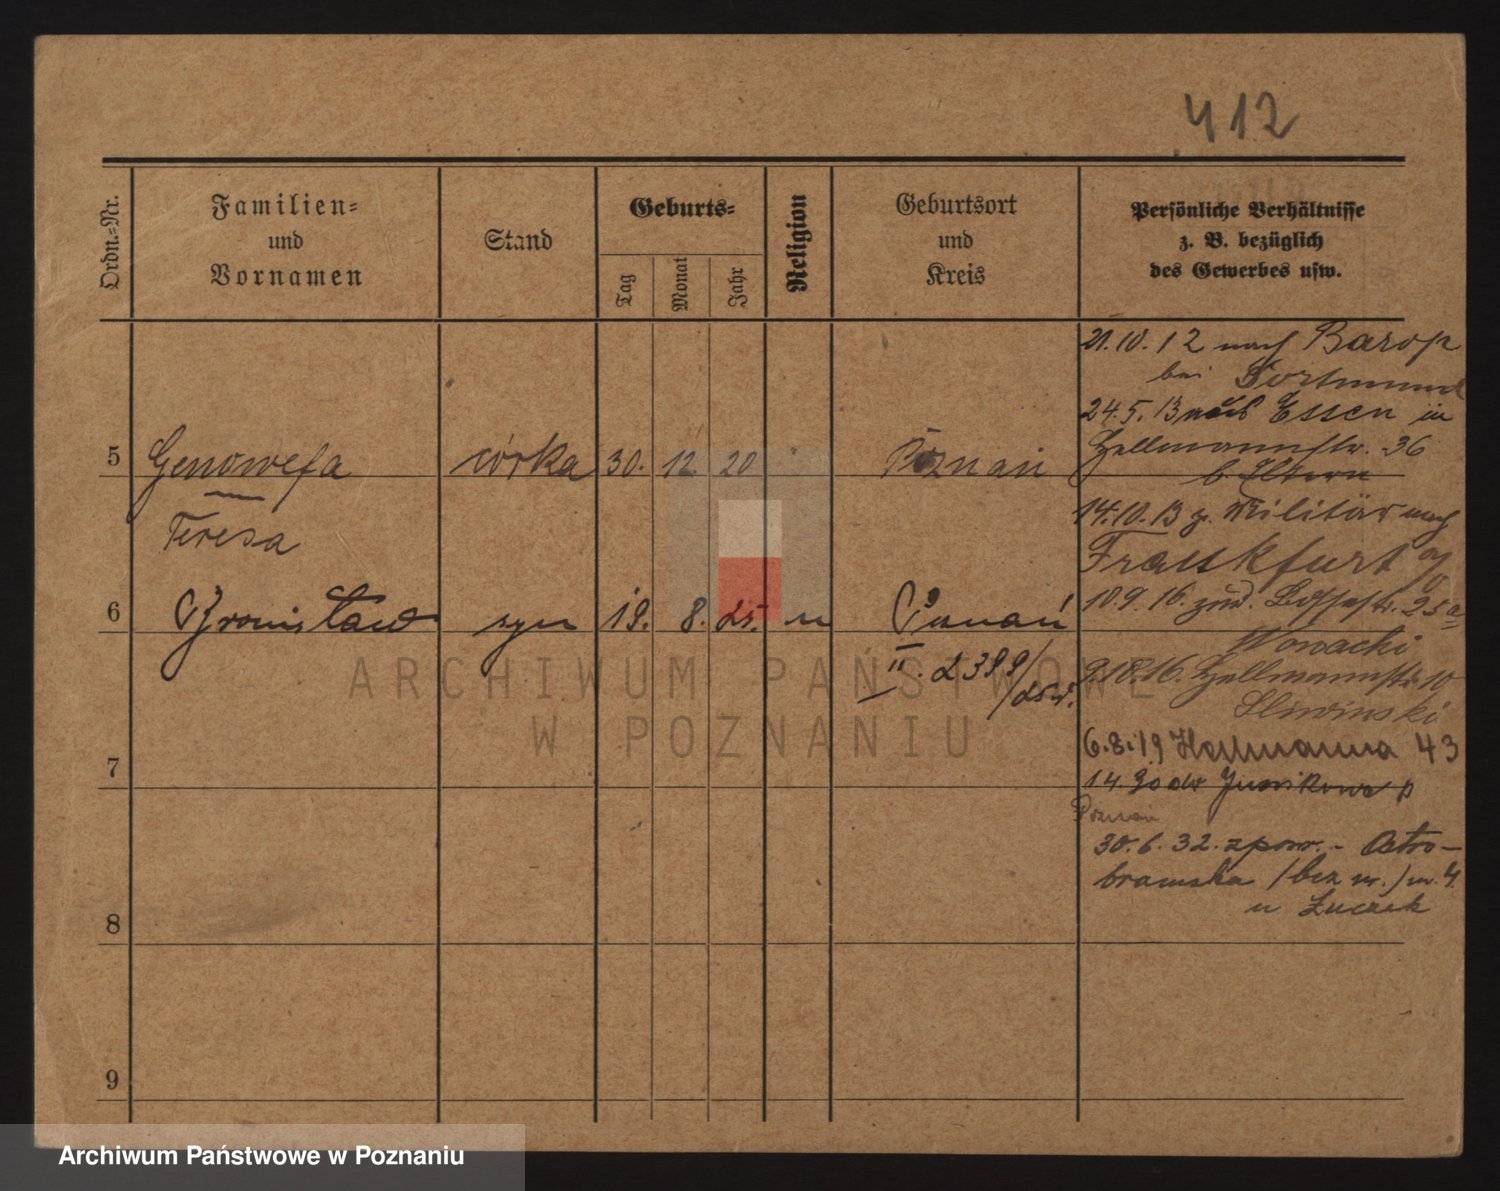 412
Ordn.-Nr.
Familien-
und
Vornamen
Stand
Geburts-
Tag
Monat
Jahr
Religion
Geburtsort
und
Kreis
Persönliche Verhältnisse
z. B. bezüglich
des Gewerbes usw.
21.10.12 nach Barop
bei Dortmund
24.5.13 nach Essen in
Hellmannstr. 36
b. Eltern
14.10.13 z. Militär nach
Frankfurt a/O
10.9.16. zück. 25a
Nowacki
9.10.16. Hellmannstr. 10
Sliwinski
6.8.19 Hoffmanna 43
14.30 do Junikowo p
Poznań
30.6.32. z pow. - Ostro-
bramska /bez nr./ m. 4.
u Łuczak
5 Genowefa córka 30. 12 20 Poznań
Teresa
6 Bronisław syn 19. 8. 25. Poznań
II. 2399/
25r.
7
8
9
ARCHIWUM PAŃSTWOWE
W POZNANIU
Archiwum Państwowe w Poznaniu